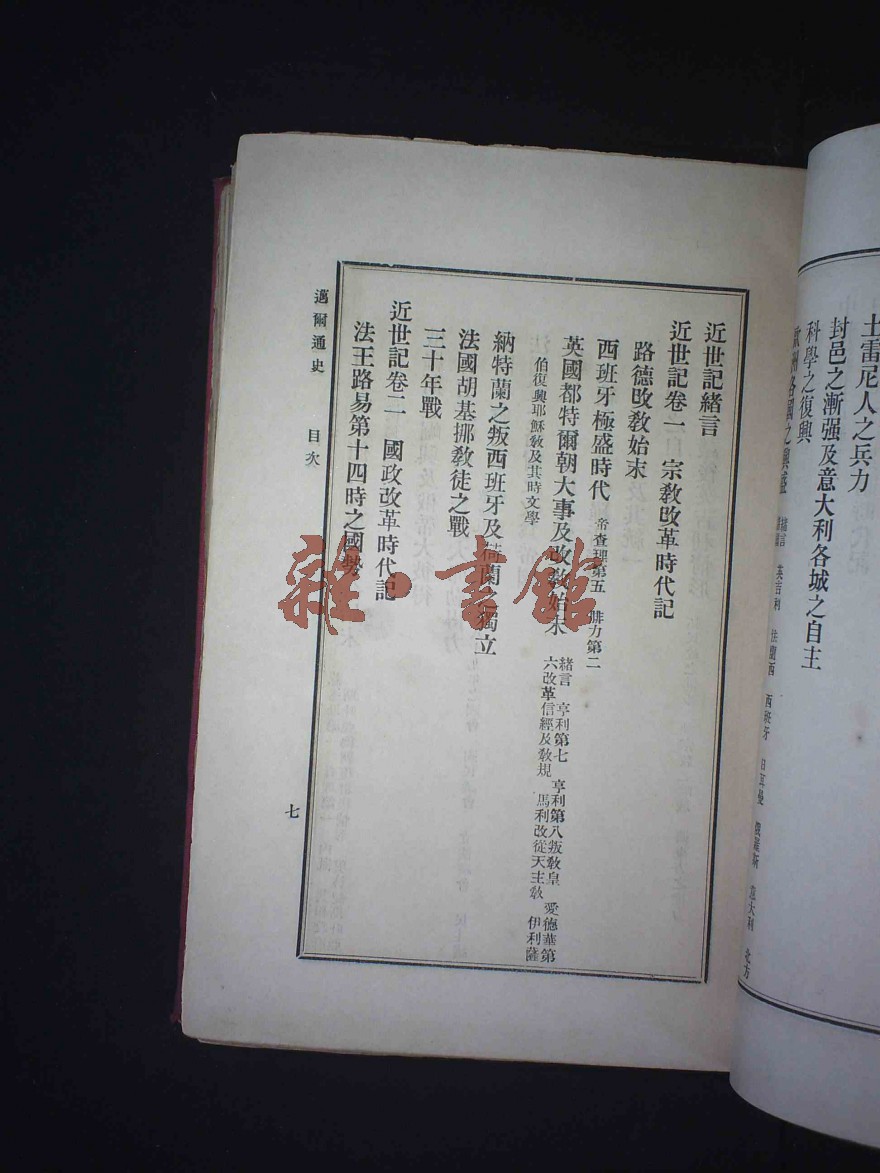 土雷尼人之兵力
封邑之漸强及意大利各城之自主
科學之復興
歐洲各國之興盛 緒言 英吉利 法蘭西 西班牙 日耳曼 俄羅斯 意大利 北方
近世記緒言
近世記卷一 宗敎改革時代記
路德改敎始末
西班牙極盛時代 帝查理第五 腓力第二
英國都特爾朝大事及改敎始末 緒言 亨利第七 亨利第八叛敎皇 愛德華第
六改革信經及敎規 馬利改從天主敎 伊利薩
伯復興耶穌敎及其時文學
納特蘭之叛西班牙及荷蘭之獨立
法國胡基挪敎徒之戰
三十年戰
近世記卷二 國政改革時代記
法王路易第十四時之國勢
邁爾通史 目次 七
雜·書館